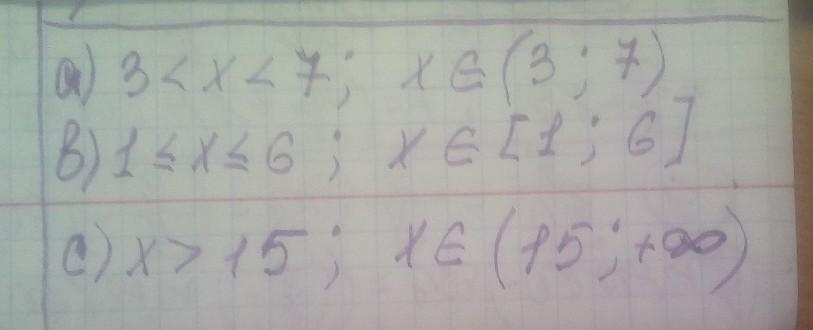 a) 3 < x < 7; x ∈ (3; 7)
b) 1 ≤ x ≤ 6; x ∈ [1; 6]
c) x > 15; x ∈ (15; +∞)